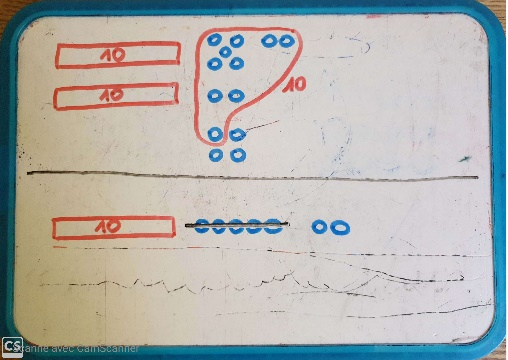 10
10
10
10
CS Scanné avec CamScanner